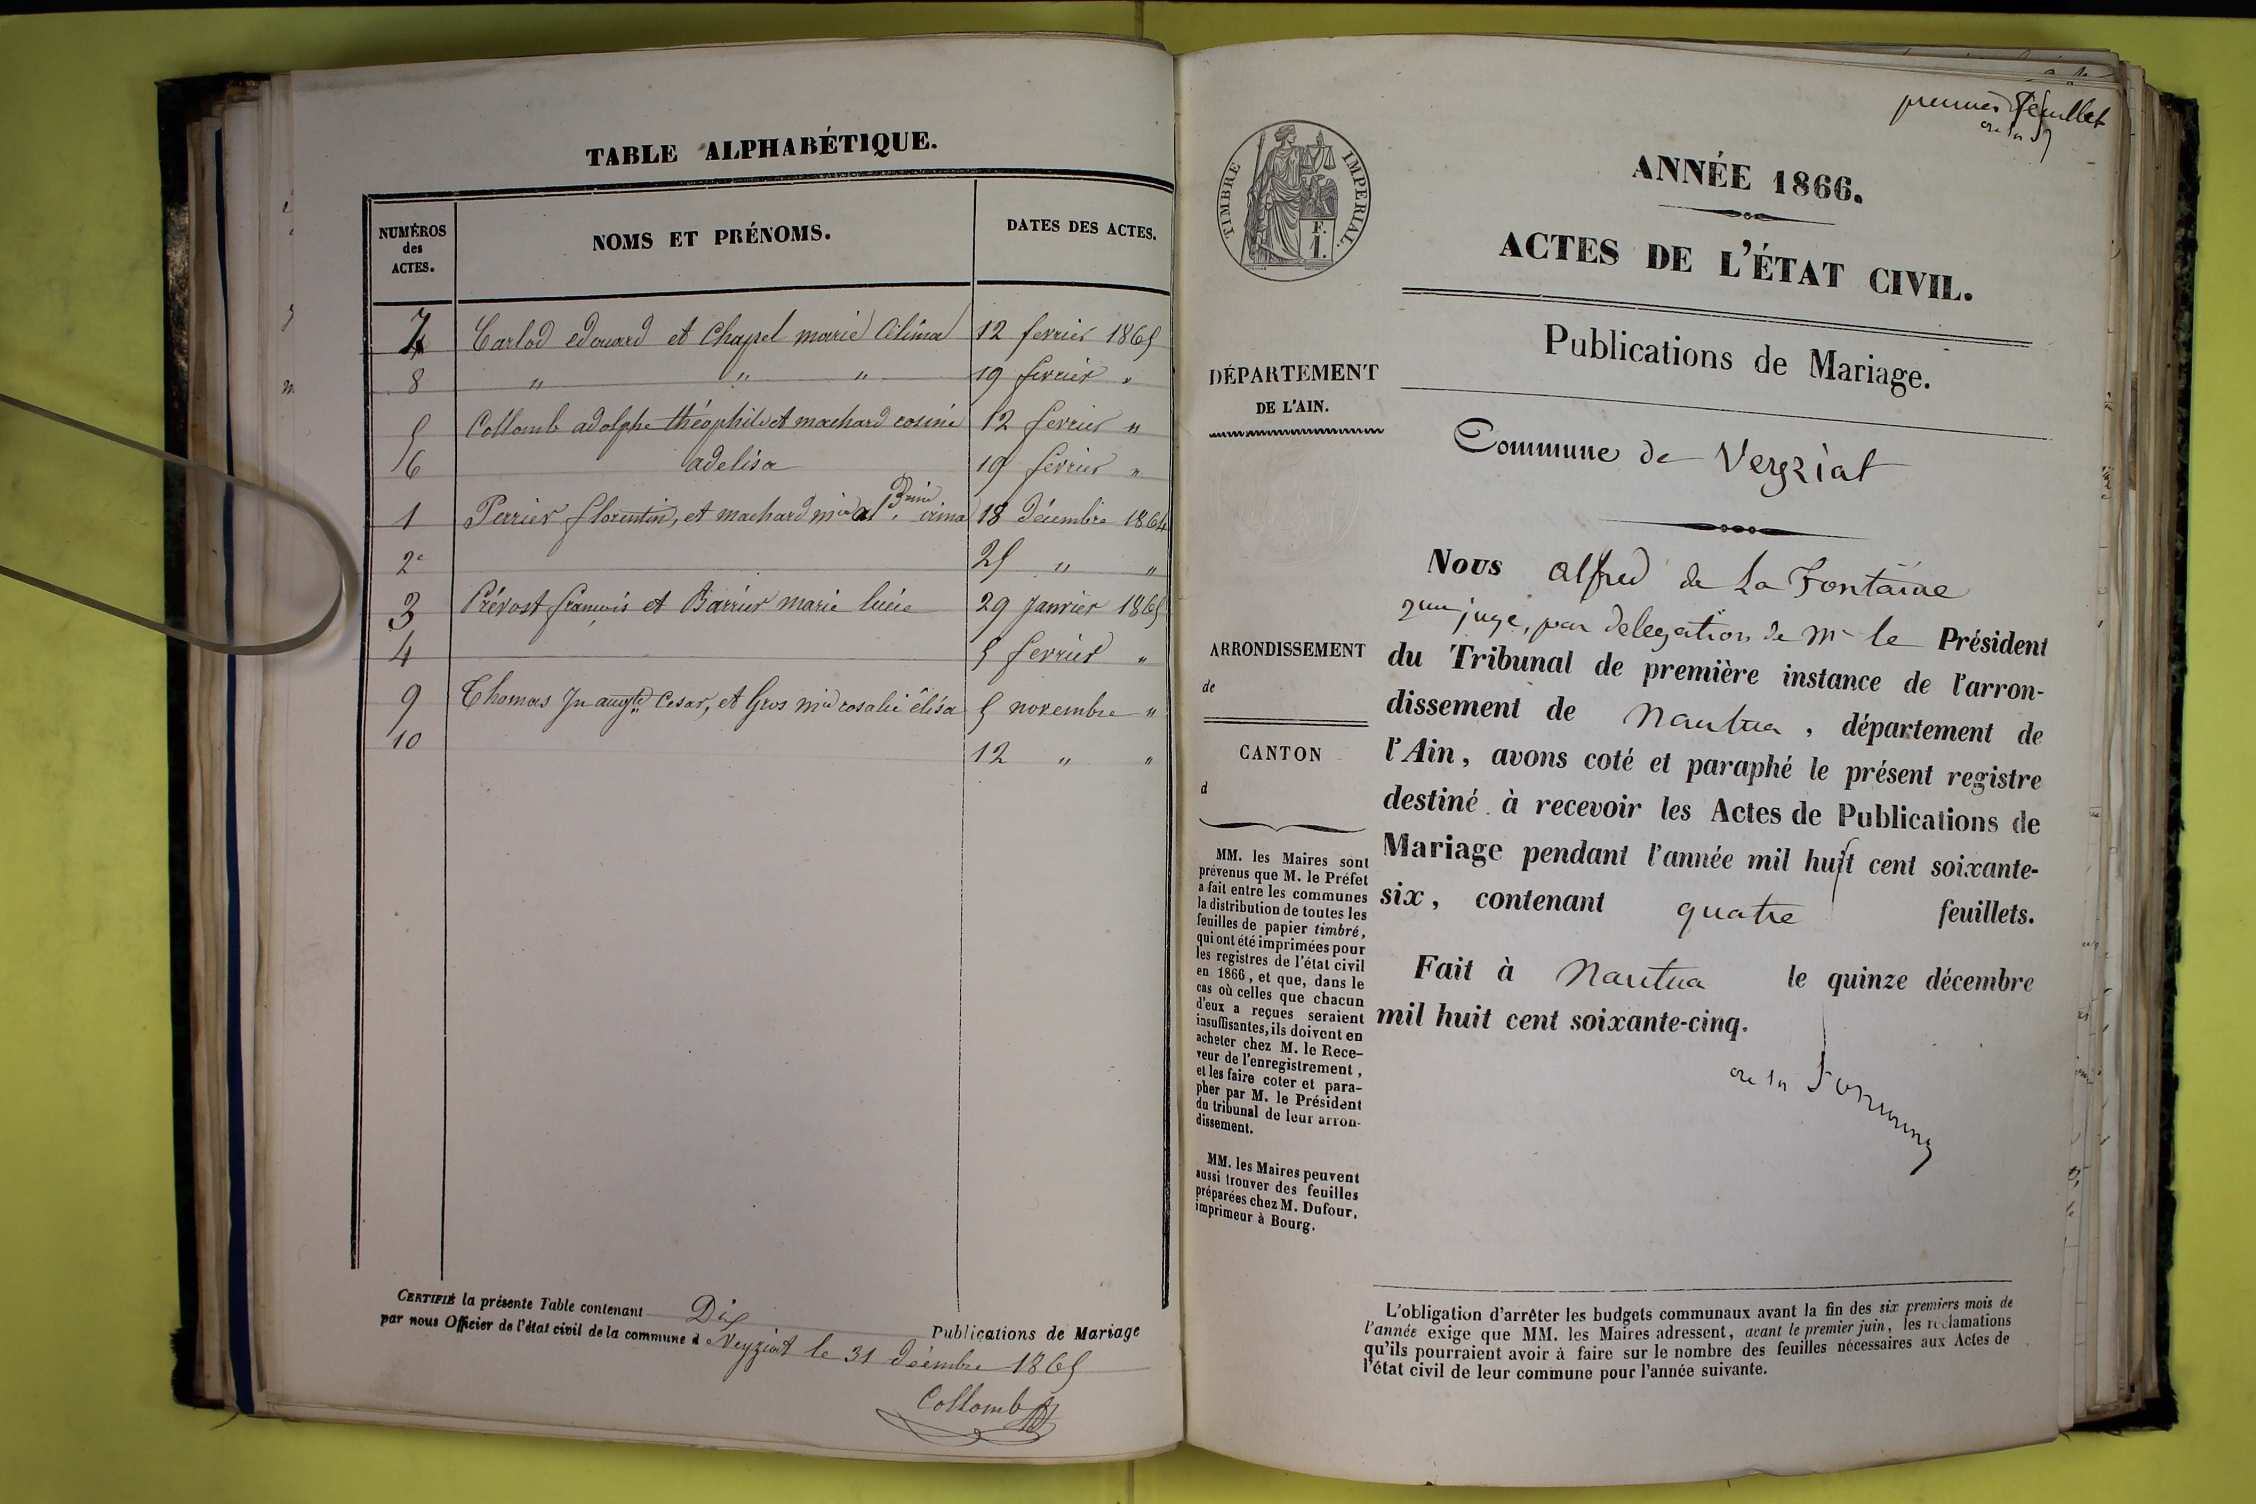 TABLE ALPHABÉTIQUE.
NUMÉROS
des
ACTES.
NOMS ET PRÉNOMS.
DATES DES ACTES.
7 Carlod edouard et Chapel marie Célina 12 fevrier 1865
8 " " " 19 fevrier "
5 Collomb adolphe théophile et machard rosine 12 fevrier "
6 adelisa 19 fevrier "
1 Perrier florentin, et machard irma 18 décembre 1864
2 25 " "
3 Prévost françois et Barrier marie lucie 29 janvier 1865
4 5 fevrier "
9 Thomas Jn augte Cesar, et Gros mie rosalie élisa 5 novembre "
10 12 " "
CERTIFIÉ la présente Table contenant Dix Publications de Mariage
par nous Officier de l'état civil de la commune d Veyziat le 31 décembre 1865
Collomb
premier feuillet
TIMBRE IMPERIAL.
F.
1.
ANNÉE 1866.
ACTES DE L'ÉTAT CIVIL.
Publications de Mariage.
DÉPARTEMENT
DE L'AIN.
Commune de Veyziat
ARRONDISSEMENT
de
CANTON
d
Nous alfred de La Fontaine
juge, par delegation de Mr le Président
du Tribunal de première instance de l'arron-
dissement de Nantua, département de
l'Ain, avons coté et paraphé le présent registre
destiné à recevoir les Actes de Publications de
Mariage pendant l'année mil huit cent soixante-
six, contenant quatre feuillets.
Fait à Nantua le quinze décembre
mil huit cent soixante-cinq.
MM. les Maires sont
prévenus que M. le Préfet
a fait entre les communes
la distribution de toutes les
feuilles de papier timbré,
qui ont été imprimées pour
les registres de l'état civil
en 1866, et que, dans le
cas où celles que chacun
d'eux a reçues seraient
insuffisantes, ils doivent en
acheter chez M. le Rece-
veur de l'enregistrement,
et les faire coter et para-
pher par M. le Président
du tribunal de leur arron-
dissement.
MM. les Maires peuvent
aussi trouver des feuilles
préparées chez M. Dufour,
imprimeur à Bourg.
L'obligation d'arrêter les budgets communaux avant la fin des six premiers mois de
l'année exige que MM. les Maires adressent, avant le premier juin, les réclamations
qu'ils pourraient avoir à faire sur le nombre des feuilles nécessaires aux Actes de
l'état civil de leur commune pour l'année suivante.